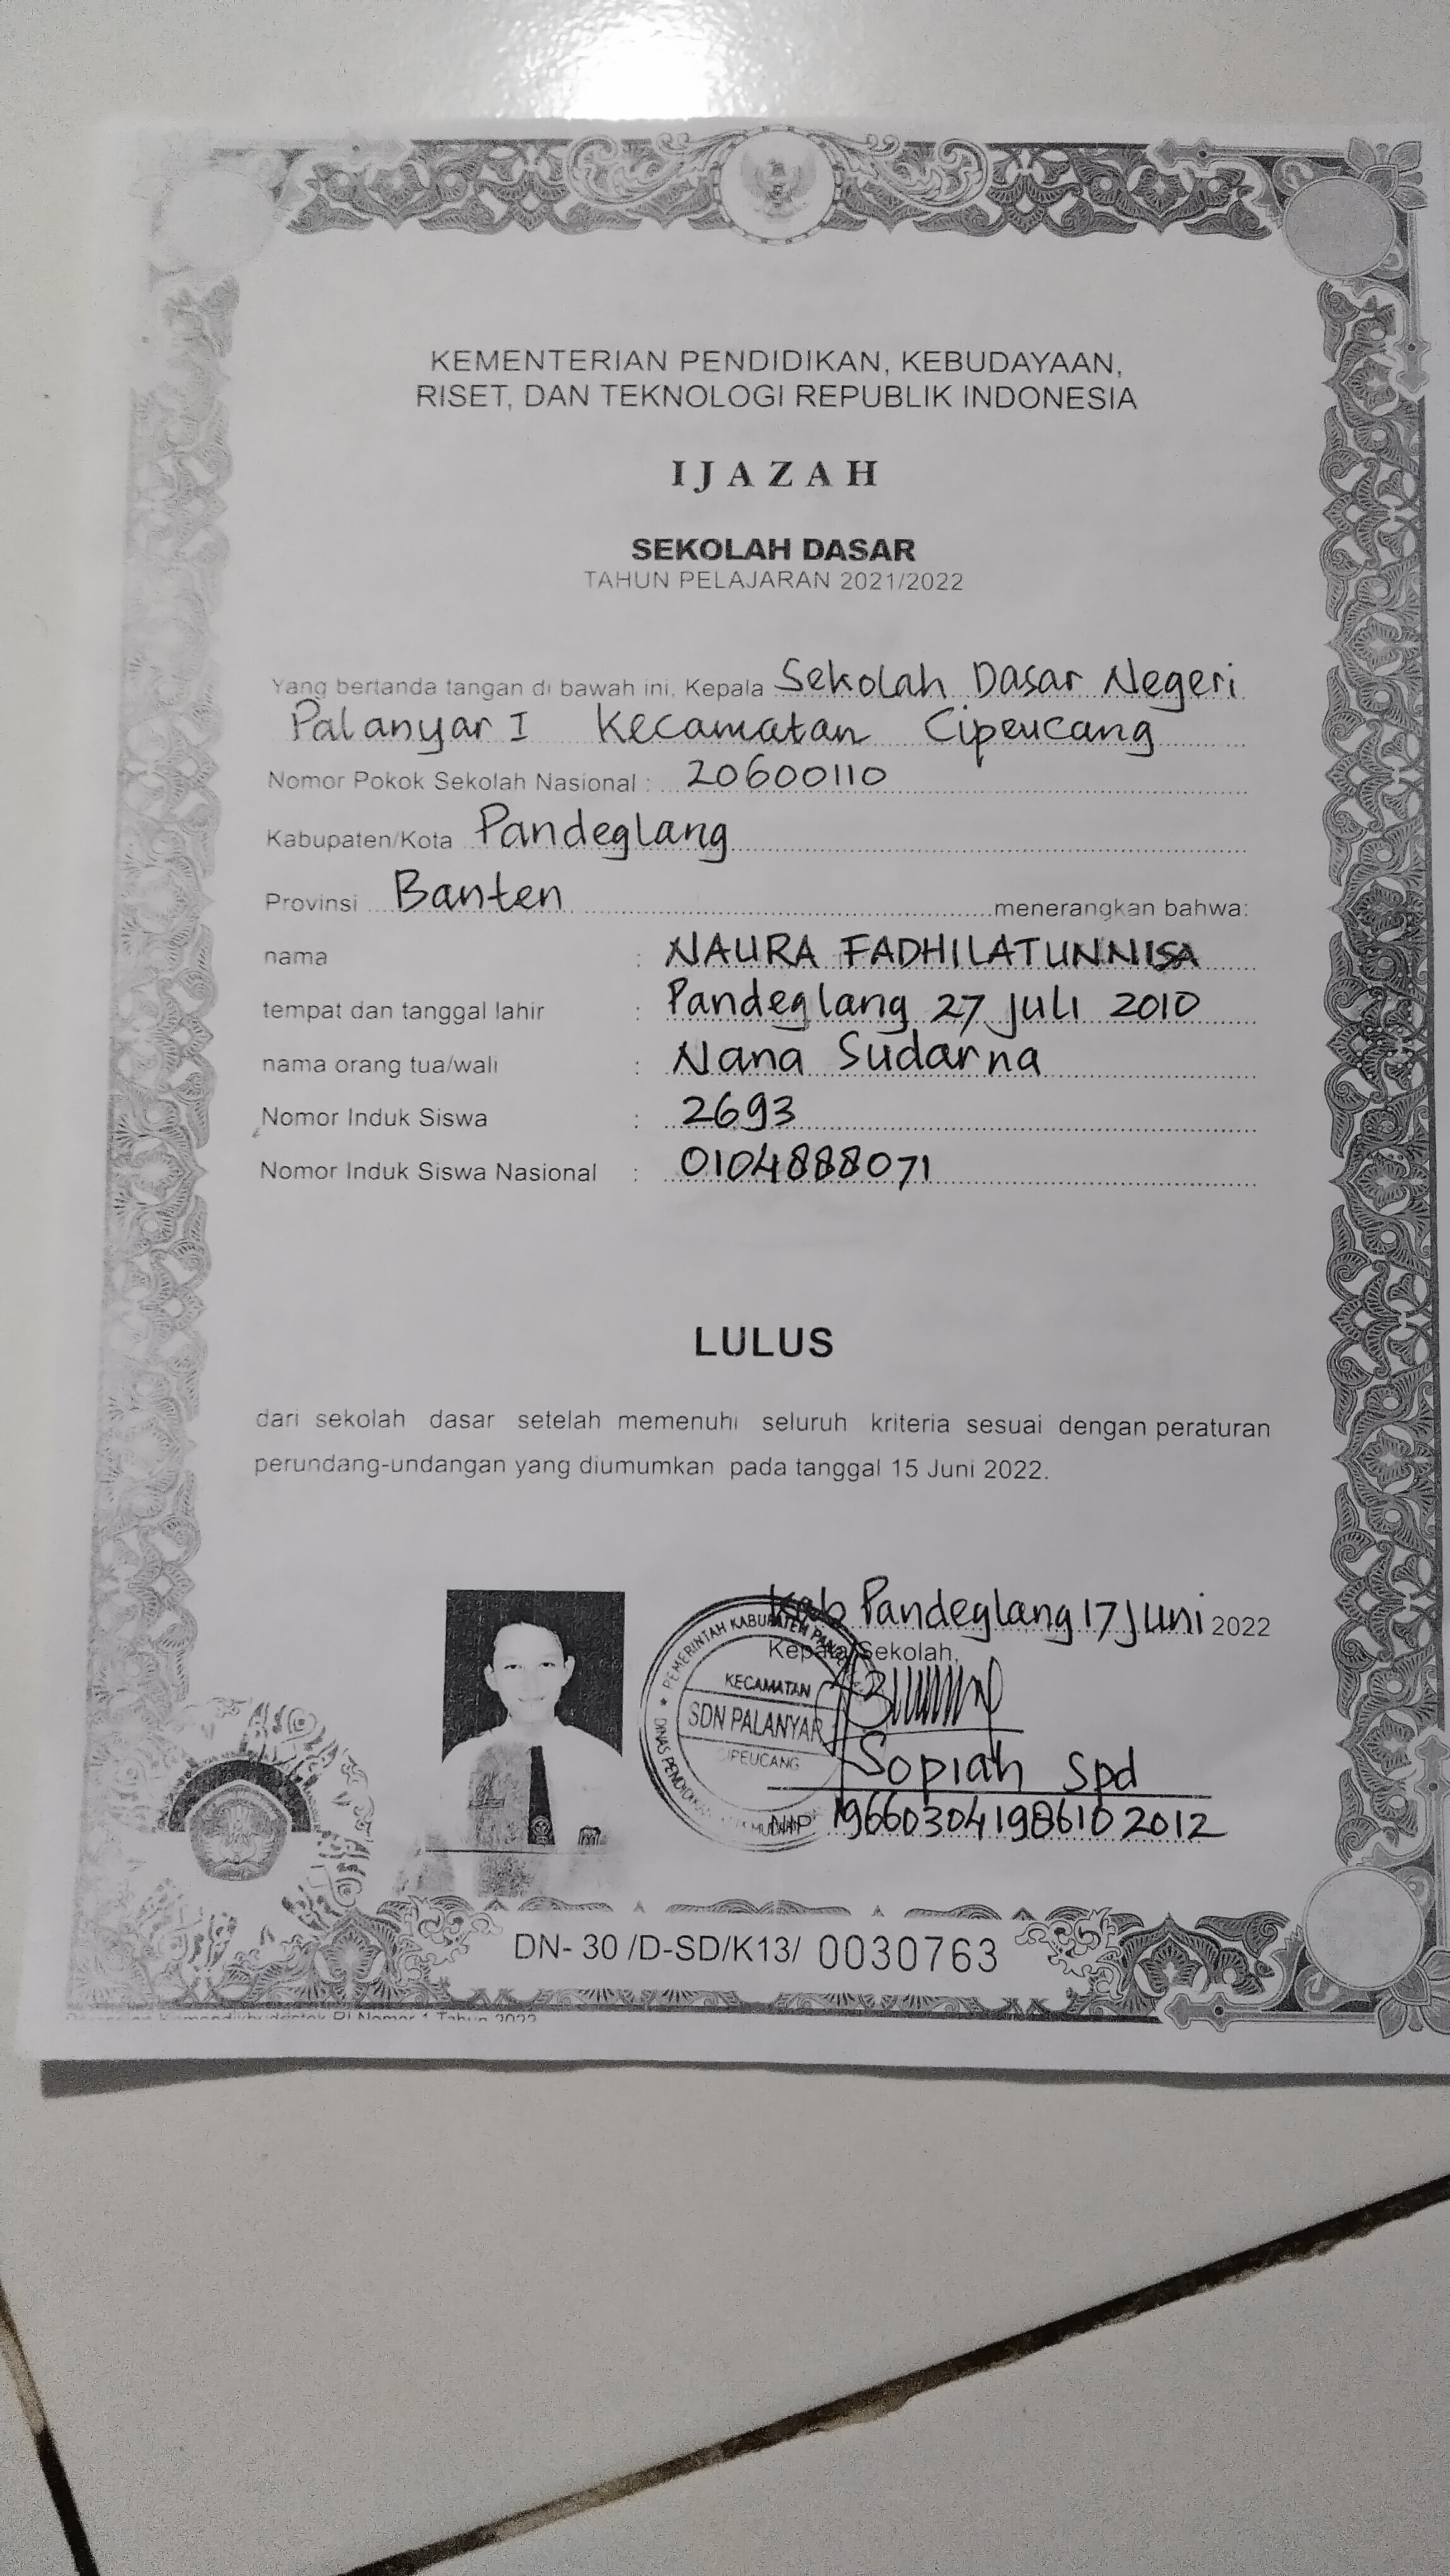 KEMENTERIAN PENDIDIKAN, KEBUDAYAAN,
RISET, DAN TEKNOLOGI REPUBLIK INDONESIA
IJAZAH
SEKOLAH DASAR
TAHUN PELAJARAN 2021/2022
Yang bertanda tangan di bawah ini, Kepala Sekolah Dasar Negeri
Palanyar I Kecamatan Cipeucang
Nomor Pokok Sekolah Nasional : 20600110
Kabupaten/Kota Pandeglang
Provinsi Banten menerangkan bahwa:
nama : NAURA FADHILATUNNISA
tempat dan tanggal lahir : Pandeglang 27 Juli 2010
nama orang tua/wali : Nana Sudarna
Nomor Induk Siswa : 2693
Nomor Induk Siswa Nasional : 0104888071
LULUS
dari sekolah dasar setelah memenuhi seluruh kriteria sesuai dengan peraturan
perundang-undangan yang diumumkan pada tanggal 15 Juni 2022.
Kab Pandeglang 17 Juni 2022
Kepala Sekolah,
PEMERINTAH KABUPATEN
KECAMATAN
SDN PALANYAR
CIPEUCANG
DINAS
Sopiah Spd
NIP 196603041986102012
DN- 30 /D-SD/K13/ 0030763
RI Nomor 1 Tahun 2022